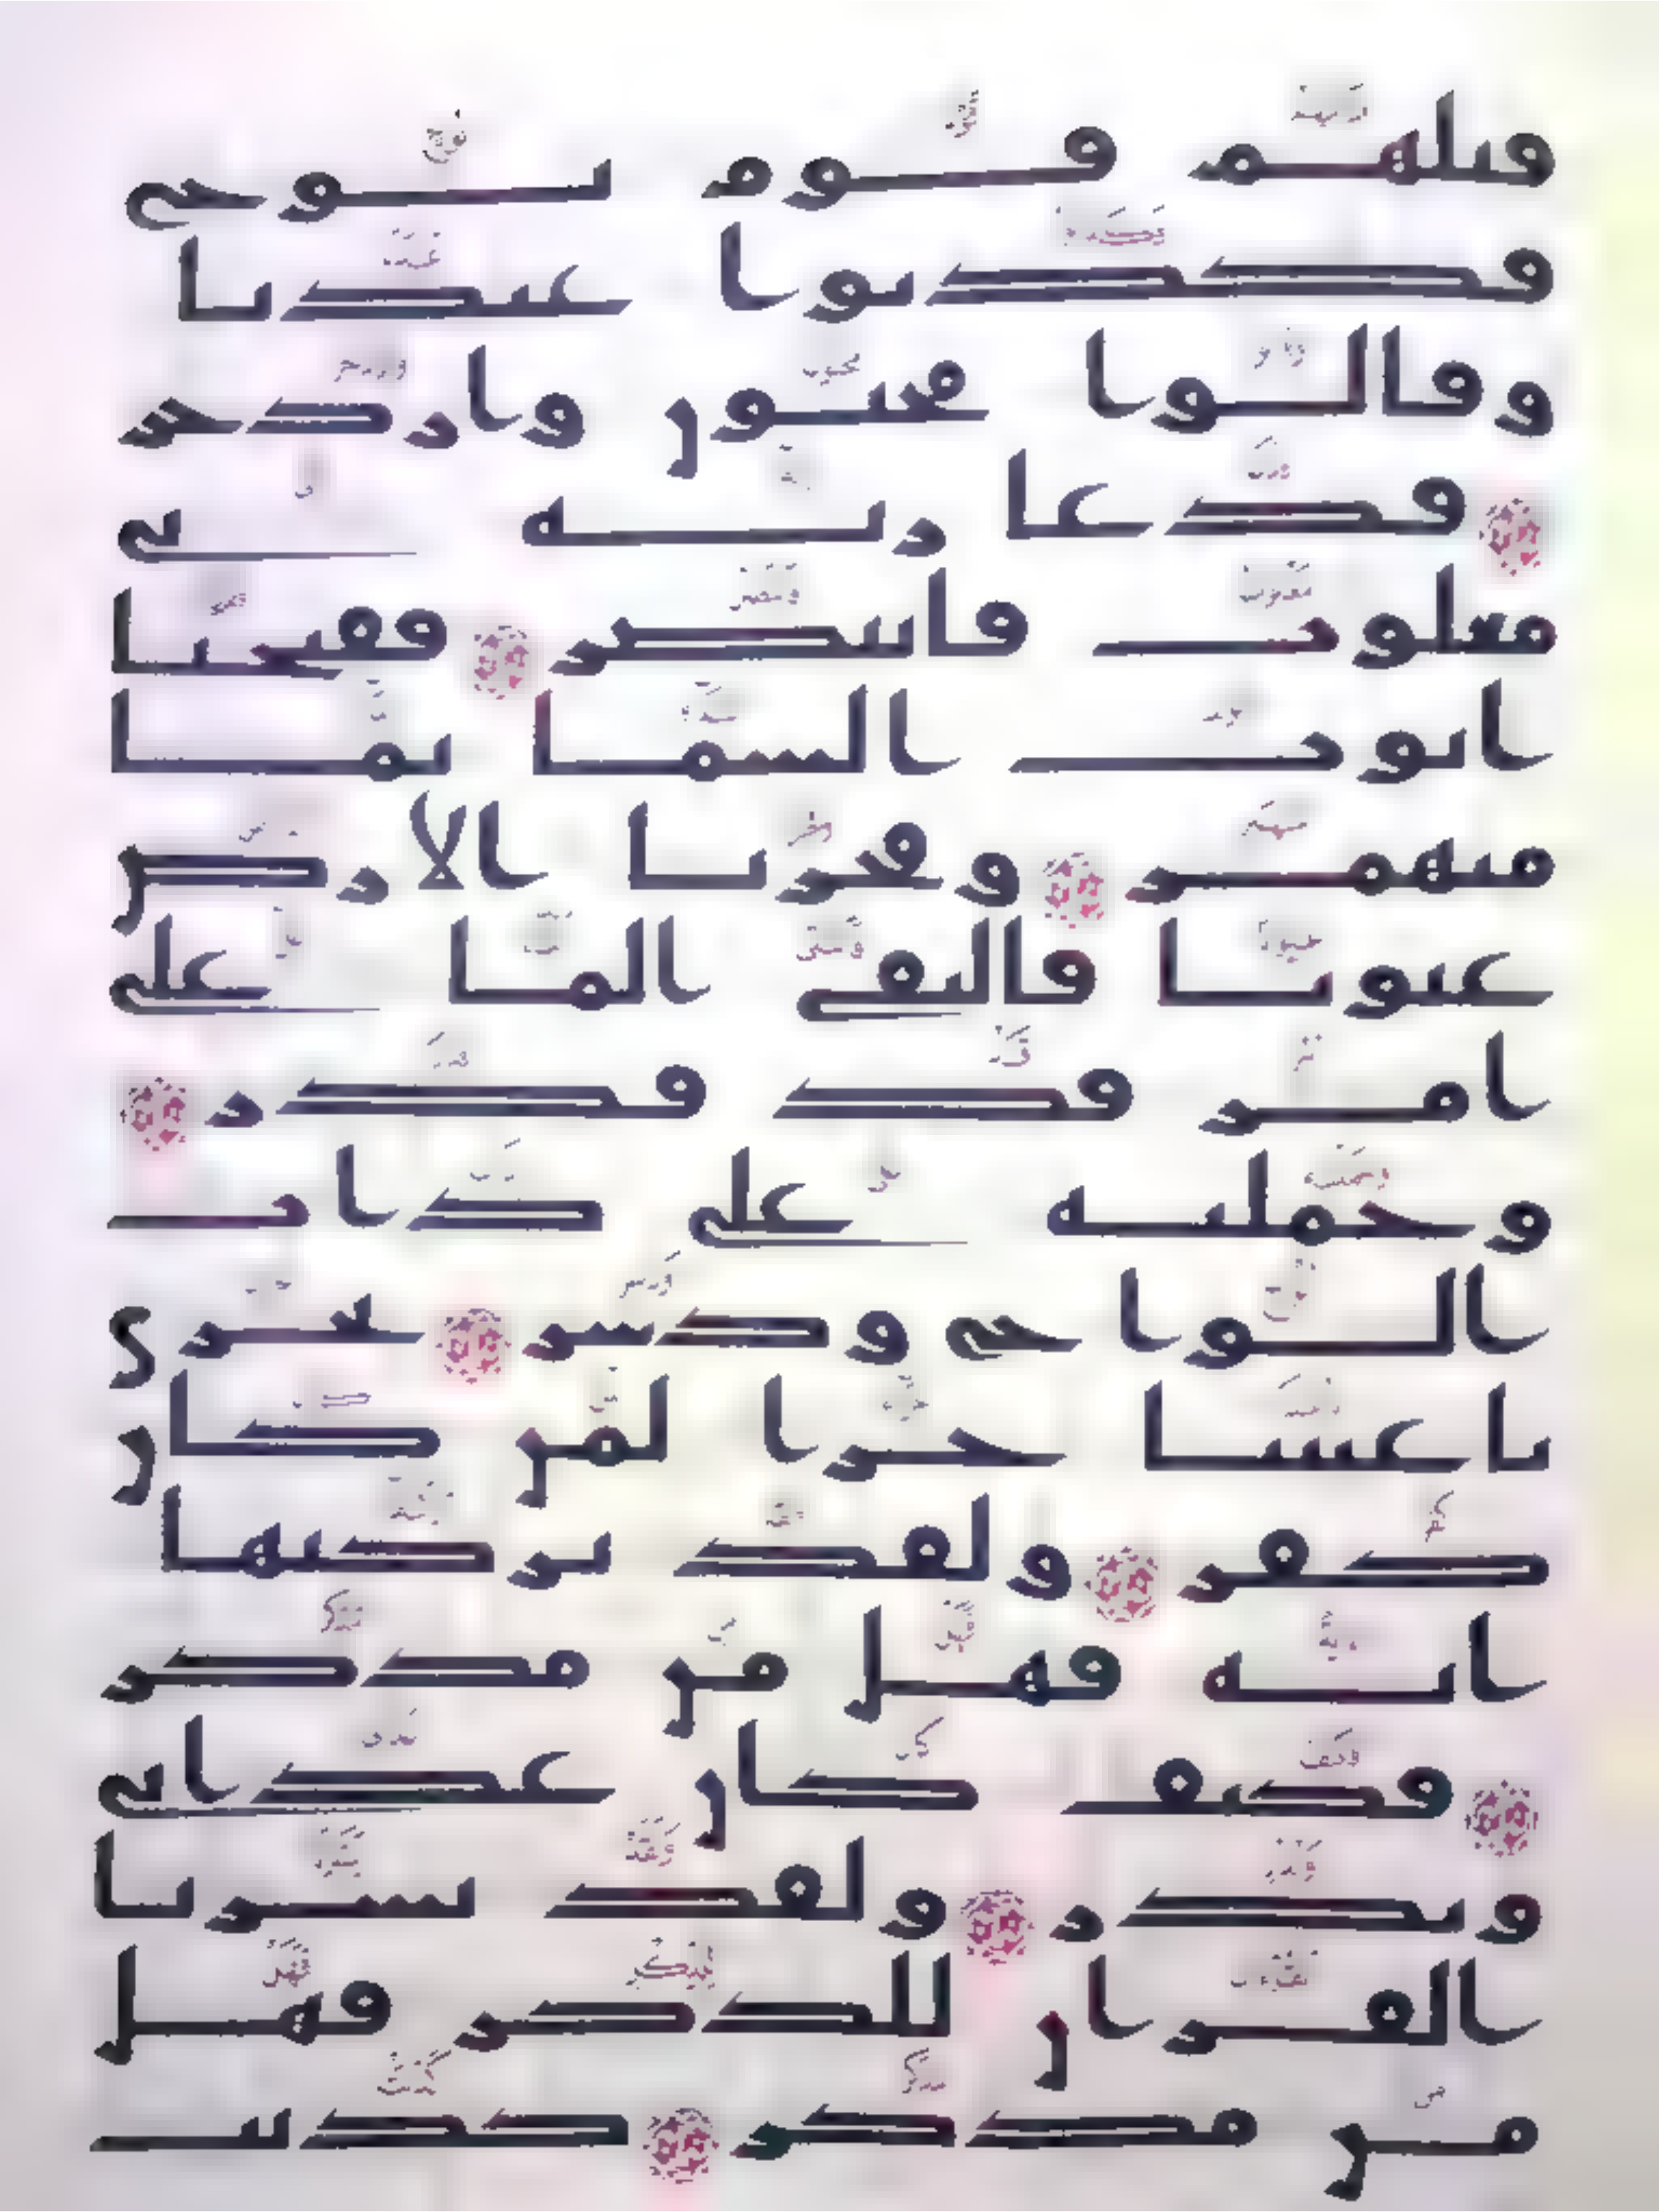 قبلهم قوم نوح
فكذبوا عبدنا
وقالوا مجنون وازدجر
فدعا ربه أني
مغلوب فانتصر ففتحنا
أبوب السما بما
منهمر وفجرنا الأرض
عيونا فالتقى الما على
أمر قد قدر
وحملنه على ذات
ألوح ودسر تجري
بأعيننا جزا لمن كان
كفر ولقد تركنها
آية فهل من مدكر
فكيف كان عذابي
ونذر ولقد يسرنا
القران للذكر فهل
من مدكر كذبت